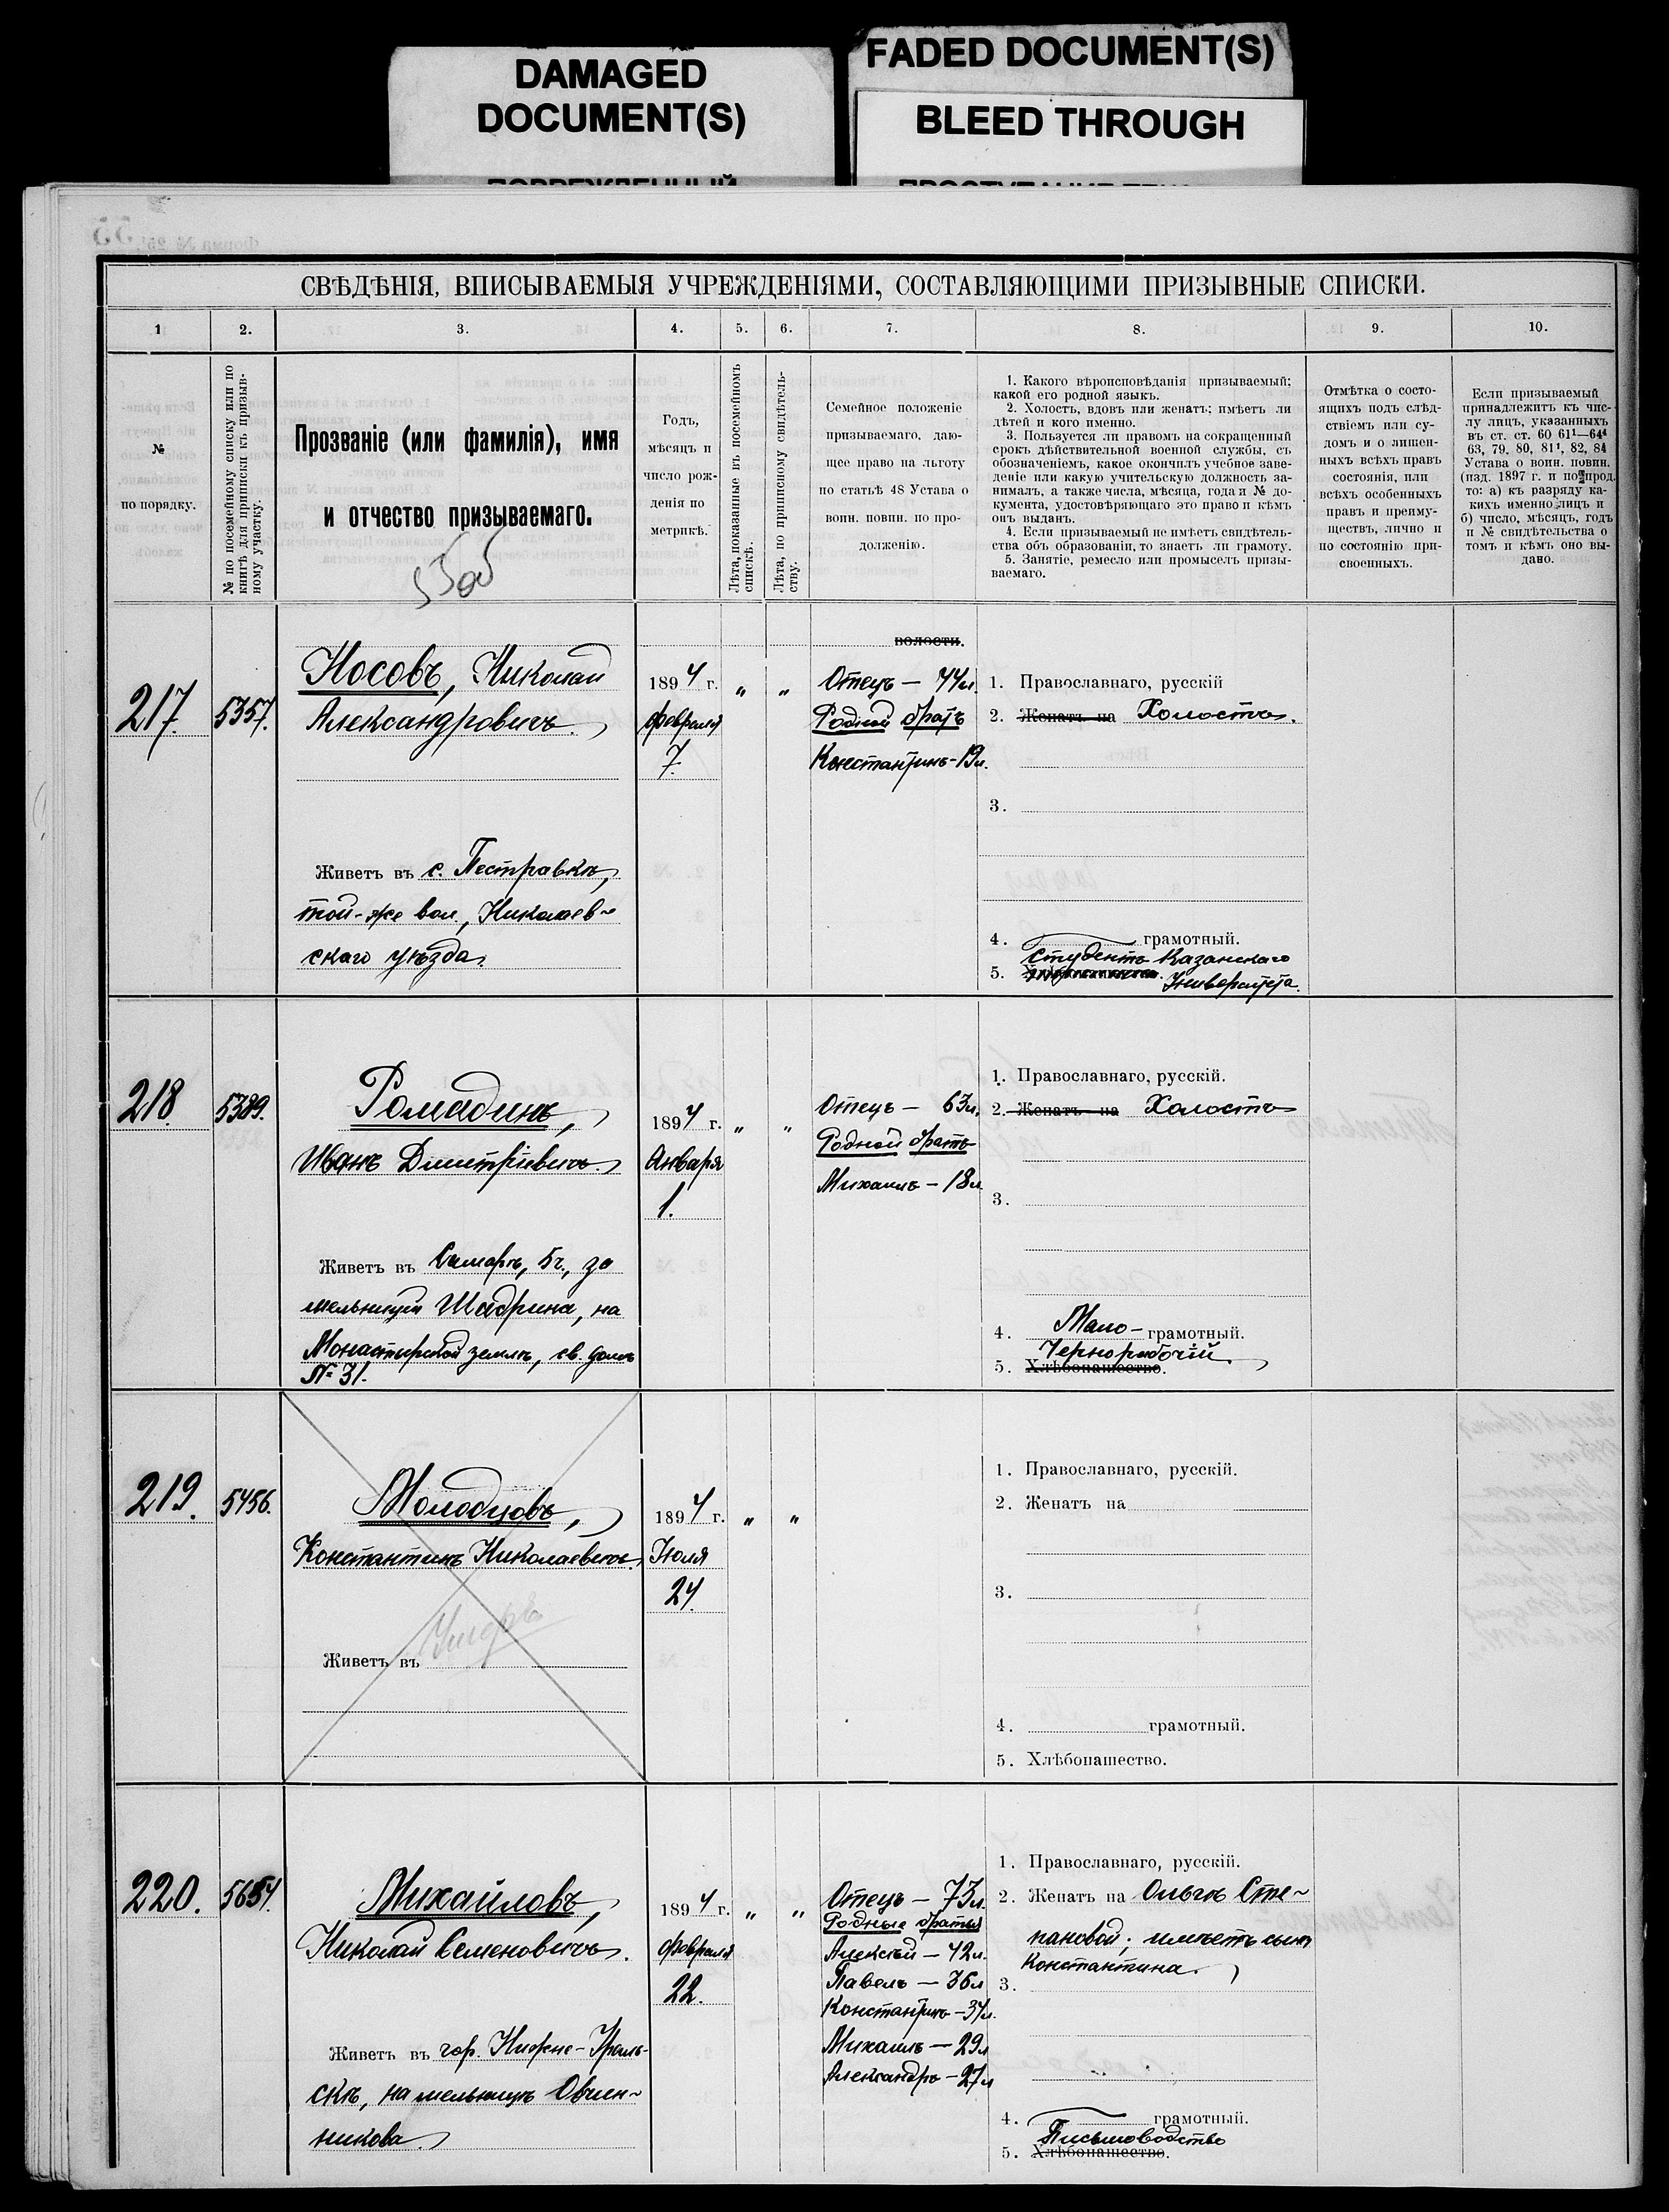 DAMAGED
DOCUMENT(S)
FADED DOCUMENT(S)
BLEED THROUGH
СВѢДѢНІЯ, ВПИСЫВАЕМЫЯ УЧРЕЖДЕНІЯМИ, СОСТАВЛЯЮЩИМИ ПРИЗЫВНЫЕ СПИСКИ.
1 2. 3. 4. 5. 6. 7. 8. 9. 10.
№
по порядку.
№ по посемейному списку или по
книгѣ для приписки къ призыв-
ному участку.
Прозваніе (или фамилія), имя
и отчество призываемаго.
Годъ,
мѣсяцъ и
число рож-
денія по
метрикѣ.
Лѣта, показанные въ посемейномъ
спискѣ.
Лѣта, по приписному свидѣтель-
ству.
Семейное положеніе
призываемаго, даю-
щее право на льготу
по статьѣ 48 Устава о
воин. повин. по про-
долженію.
1. Какого вѣроисповѣданія призываемый;
какой его родной языкъ.
2. Холостъ, вдовъ или женатъ; имѣетъ ли
дѣтей и кого именно.
3. Пользуется ли правомъ на сокращенный
срокъ дѣйствительной военной службы, съ
обозначеніемъ, какое окончилъ учебное заве-
деніе или какую учительскую должность за-
нималъ, а также числа, мѣсяца, года и № до-
кумента, удостовѣряющаго это право и кѣмъ
онъ выданъ.
4. Если призываемый не имѣетъ свидѣтель-
ства объ образованіи, то знаетъ ли грамоту.
5. Занятіе, ремесло или промыселъ призы-
ваемаго.
Отмѣтка о состо-
ящихъ подъ слѣд-
ствіемъ или су-
домъ и о лишен-
ныхъ всѣхъ правъ
состоянія, или
всѣхъ особенныхъ
правъ и преиму-
ществъ, лично и
по состоянію при-
своенныхъ.
Если призываемый
принадлежитъ къ чис-
лу лицъ, указанныхъ
въ ст. ст. 60 61¹—64⁴
63, 79, 80, 81¹, 82, 84
Устава о воин. повин.
(изд. 1897 г. и по прод.
то: а) къ разряду ка-
кихъ именно лицъ и
б) число, мѣсяцъ, годъ
и № свидѣтельства о
томъ и кѣмъ оно вы-
дано.
217. 5357.
Носовъ, Николай
Александровичъ.
Живетъ въ с. Пестравкѣ,
той-же вол., Николаев-
скаго уѣзда.
1894 г.
февраля
7.
" "
волости.
Отецъ — 44 л.
Родной братъ
Константинъ - 19 л.
1. Православнаго, русскій
2. Женатъ на Холостъ.
3.
4. грамотный.
Студентъ Казанскаго
5. Университета.
218. 5389.
Ромадинъ,
Иванъ Дмитріевичъ.
Живетъ въ Самарѣ, 5 ч., за
мельницей Шадрина, на
Монастырской землѣ, св. домъ
№ 31.
1894 г.
Января
1.
" "
Отецъ — 63 л.
Родной братъ
Михаилъ — 18 л.
1. Православнаго, русскій.
2. Женатъ на Холостъ
3.
4. Мало-грамотный.
Чернорабочій
5. Хлѣбопашество.
219. 5456.
Молодцовъ,
Константинъ Николаевичъ.
Умеръ
Живетъ въ
1894 г.
Іюля
24.
" "
1. Православнаго, русскій.
2. Женатъ на
3.
4. грамотный.
5. Хлѣбопашество.
220.
Михайловъ,
Николай Семеновичъ.
Живетъ въ гор. Нижне-Ураль-
скѣ, на мельницѣ Овчин-
никова.
1894 г.
февраля
22.
" "
Отецъ — 73 л.
Родные братья
Алексѣй — 42 л.
Павелъ — 36 л
Константинъ — 34 л.
Михаилъ — 29 л
Александръ — 27 л
1. Православнаго, русскій.
2. Женатъ на Ольгѣ Сте-
пановой; имѣетъ сына
Константина.
3.
4. грамотный.
Письмоводство
5. Хлѣбопашество.